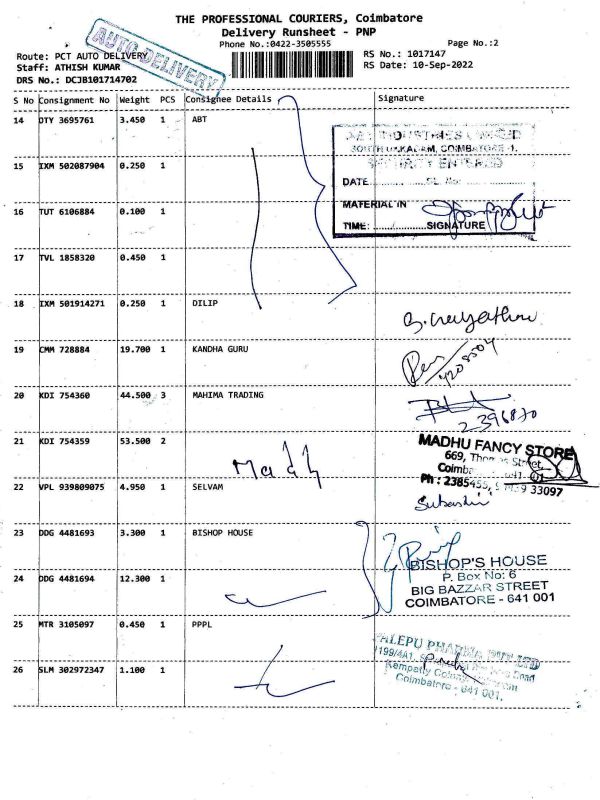 THE PROFESSIONAL COURIERS, Coimbatore
Delivery Runsheet - PNP
Phone No.:0422-3505555
Page No.:2
Route: PCT AUTO DELIVERY
RS No.: 1017147
Staff: ATHISH KUMAR
RS Date: 10-Sep-2022
DRS No.: DCJB101714702
AUTO DELIVERY
S No Consignment No Weight PCS Consignee Details Signature
14 DTY 3695761 3.450 1 ABT
COIMBATORE
15 IXM 502087904 0.250 1
DATE
MATERIAL IN
16 TUT 6106884 0.100 1
TIME: SIGNATURE
17 TVL 1858320 0.450 1
18 IXM 501914271 0.250 1 DILIP
19 CMM 728884 19.700 1 KANDHA GURU
20 KDI 754360 44.500 3 MAHIMA TRADING
2396870
21 KDI 754359 53.500 2
MADHU FANCY STORE
669, Street,
Ph : 2385455, 33097
22 VPL 939809075 4.950 1 SELVAM
23 DDG 4481693 3.300 1 BISHOP HOUSE
BISHOP'S HOUSE
P. Box No: 6
BIG BAZZAR STREET
COIMBATORE - 641 001
24 DDG 4481694 12.300 1
25 MTR 3105097 0.450 1 PPPL
Coimbatore - 641 001.
26 SLM 302972347 1.100 1